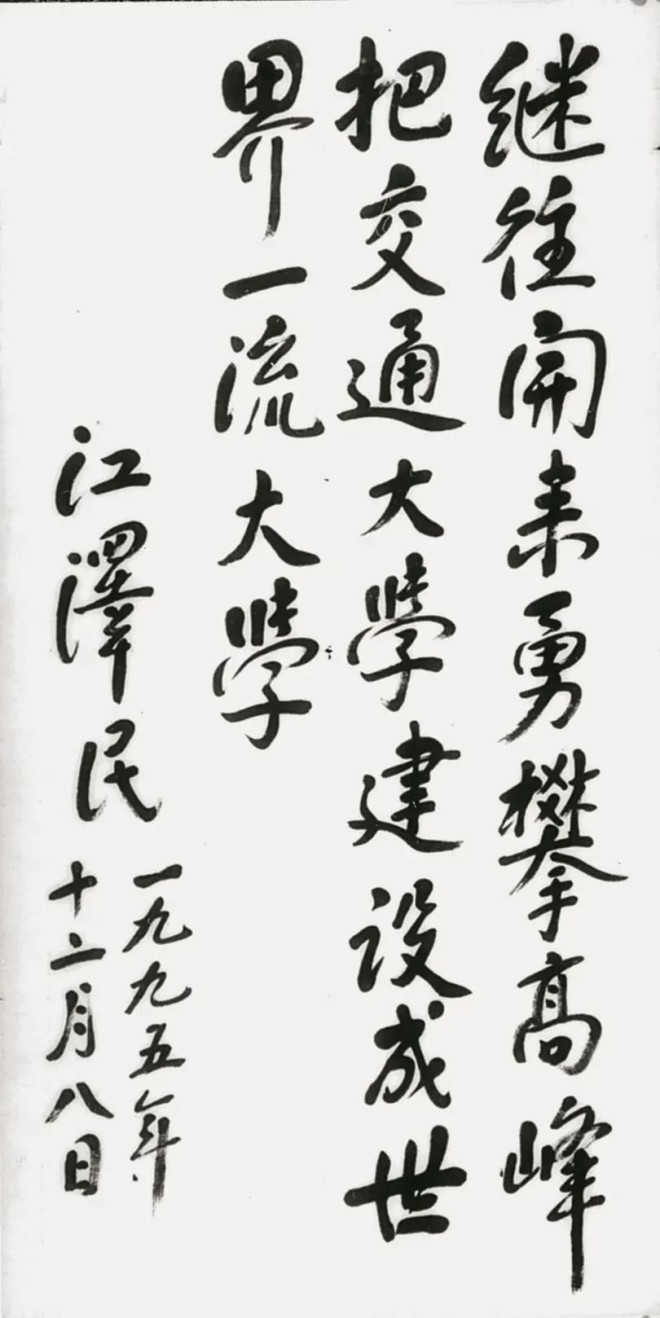 继往开来勇攀高峰
把交通大學建设成世
界一流大學
江澤民
一九九五年
十二月八日